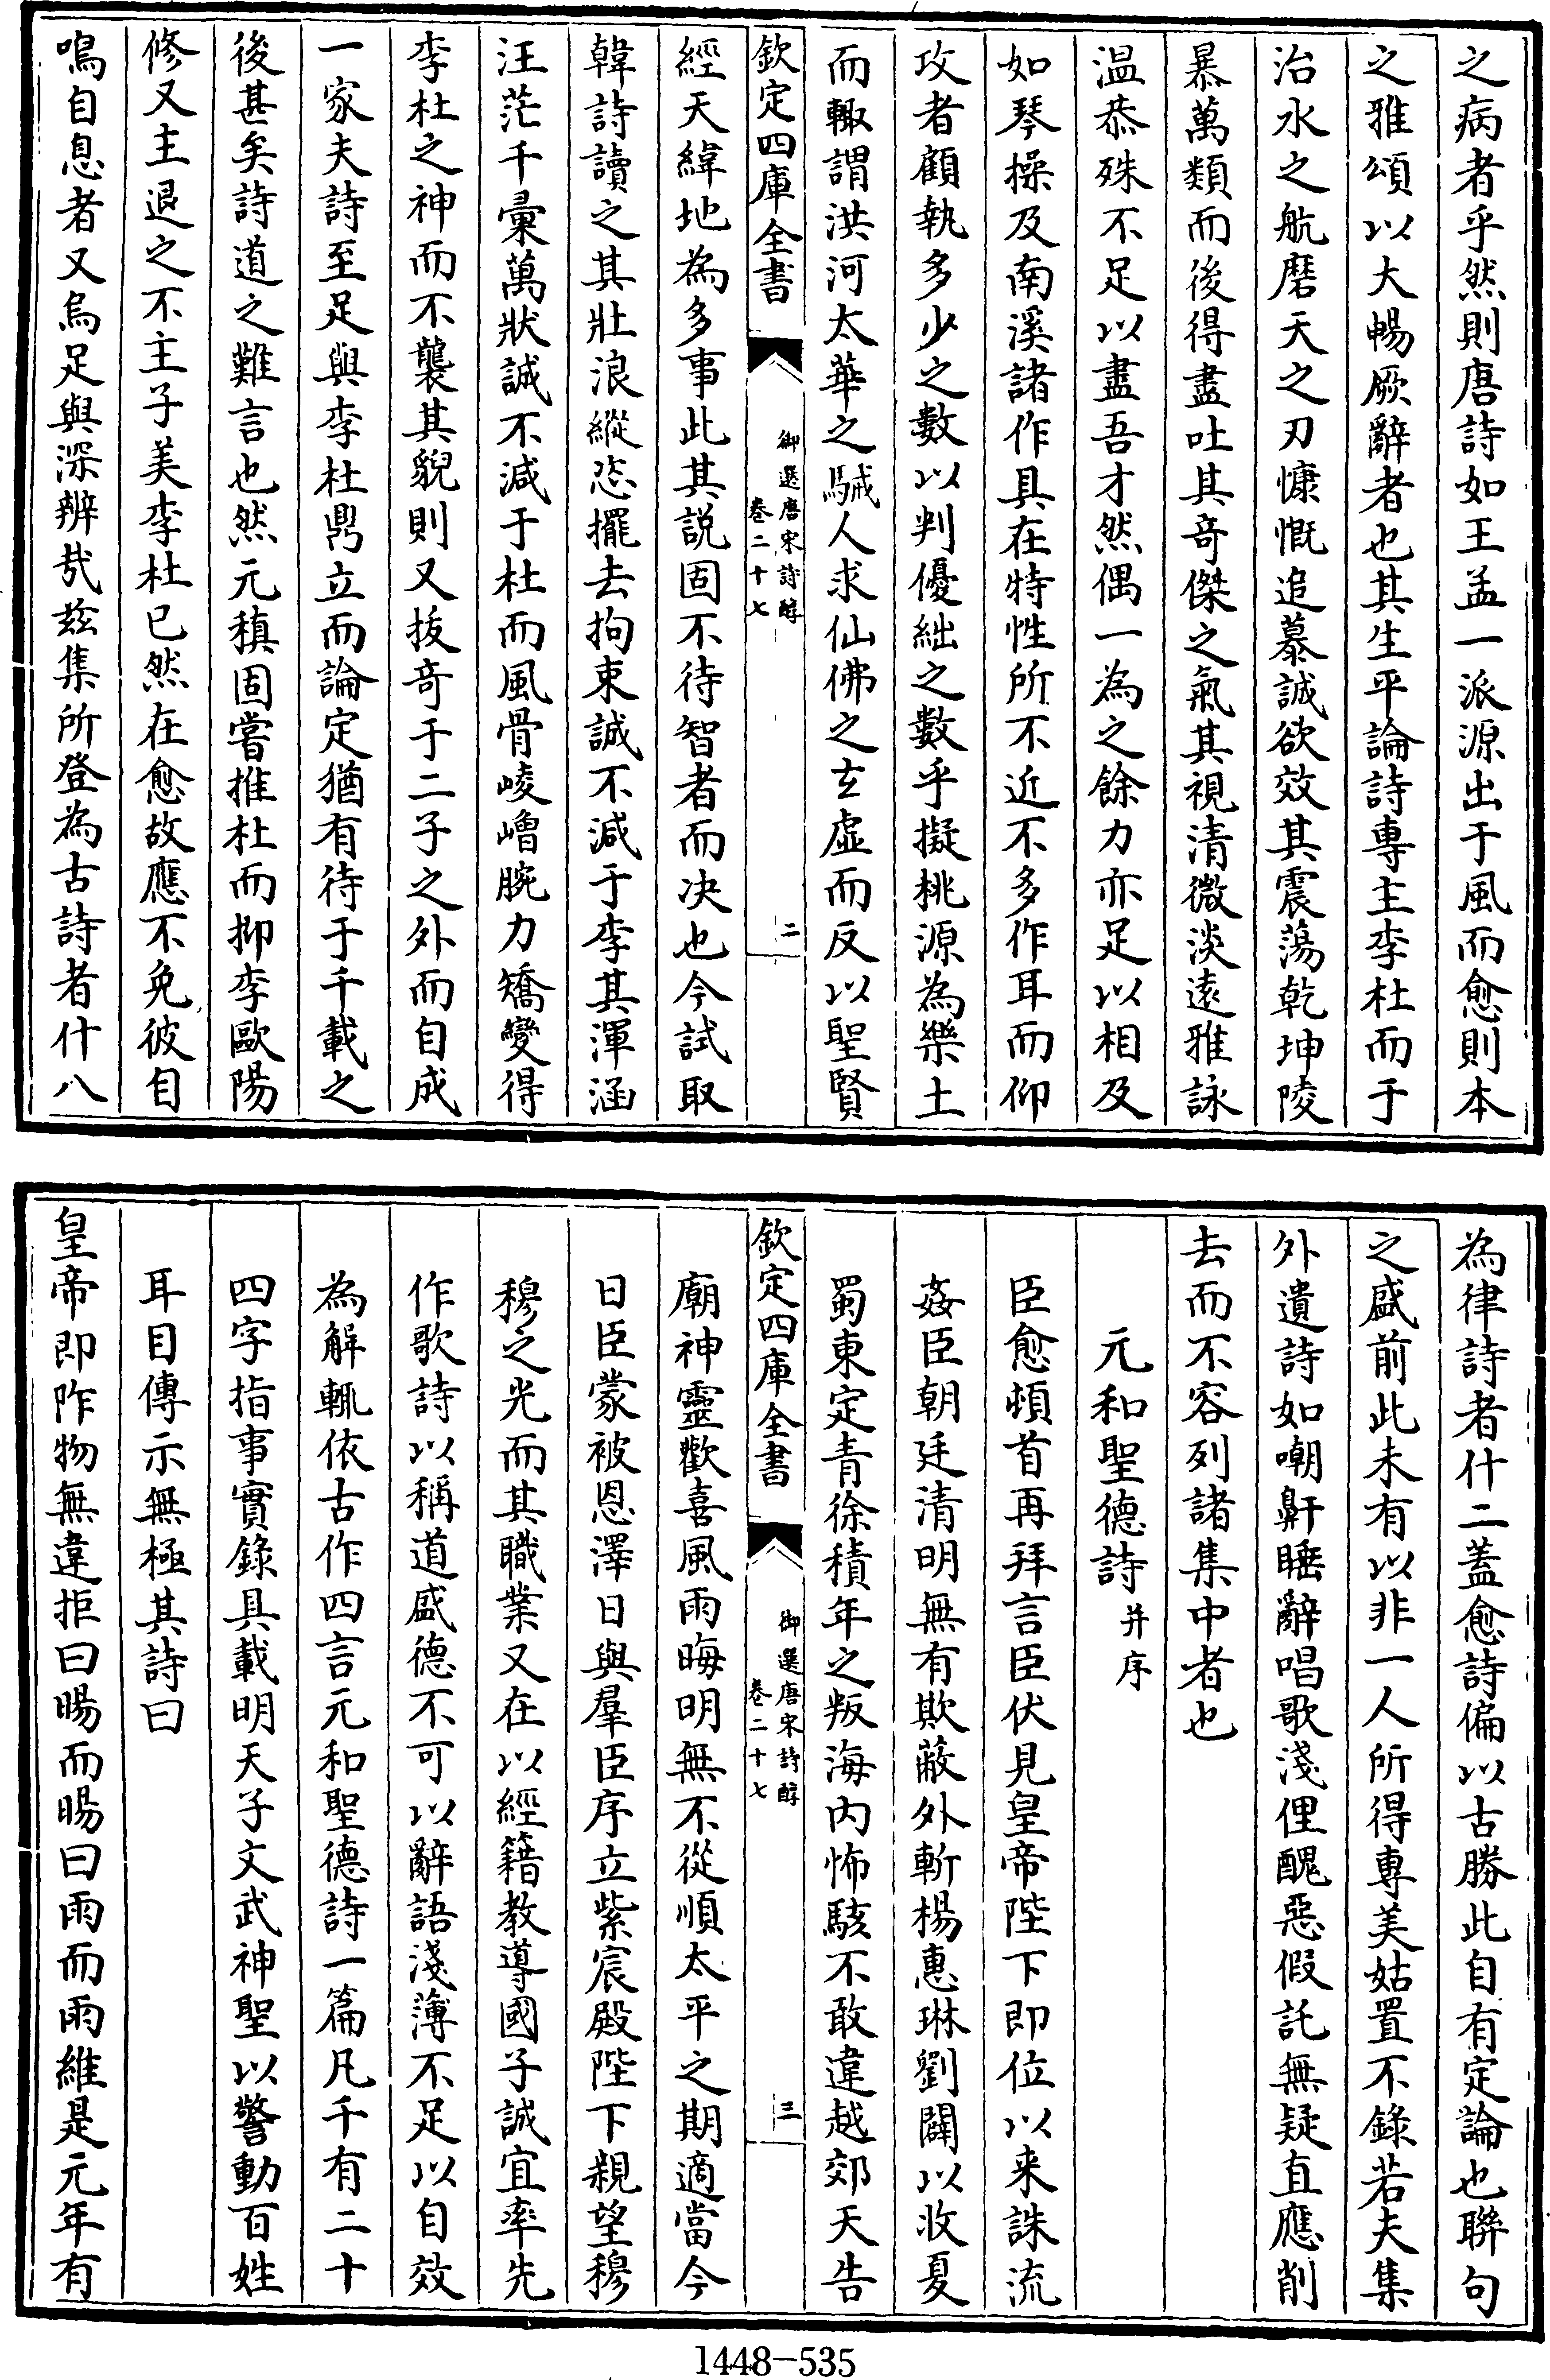 之病者乎然則唐詩如王孟一派源出于風而愈則本
之雅頌以大暢厥辭者也其生平論詩專主李杜而于
治水之航磨天之刃慷慨追慕誠欲效其震蕩乾坤陵
暴萬類而後得盡吐其奇傑之氣其視清微淡遠雅詠
温恭殊不足以盡吾才然偶一為之餘力亦足以相及
如琴操及南溪諸作具在特性所不近不多作耳而仰
攻者顧執多少之數以判優絀之數乎擬桃源為樂土
而輙謂洪河太華之駴人求仙佛之玄虛而反以聖賢
欽定四庫全書
御選唐宋詩醇
卷二十七
二
經天緯地為多事此其説固不待智者而決也今試取
韓詩讀之其壯浪縱恣擺去拘束誠不減于李其渾涵
汪茫千彙萬狀誠不減于杜而風骨崚嶒腕力矯變得
李杜之神而不襲其貌則又拔奇于二子之外而自成
一家夫詩至足與李杜鼎立而論定猶有待于千載之
後甚矣詩道之難言也然元稹固嘗推杜而抑李歐陽
修又主退之不主子美李杜已然在愈故應不免彼自
鳴自息者又烏足與深辨哉兹集所登為古詩者什八
為律詩者什二蓋愈詩偏以古勝此自有定論也聯句
之盛前此未有以非一人所得專美姑置不錄若夫集
外遺詩如嘲鼾睡辭唱歌淺俚醜惡假託無疑直應削
去而不容列諸集中者也
元和聖德詩并序
臣愈頓首再拜言臣伏見皇帝陛下即位以来誅流
姦臣朝廷清明無有欺蔽外斬楊惠琳劉闢以收夏
蜀東定青徐積年之叛海内怖駭不敢違越郊天告
欽定四庫全書
御選唐宋詩醇
卷二十七
三
廟神靈歡喜風雨晦明無不從順太平之期適當今
日臣蒙被恩澤日與羣臣序立紫宸殿陛下親望穆
穆之光而其職業又在以經籍教導國子誠宜率先
作歌詩以稱道盛德不可以辭語淺薄不足以自效
為解輒依古作四言元和聖德詩一篇凡千有二十
四字指事實錄具載明天子文武神聖以警動百姓
耳目傳示無極其詩曰
皇帝即阼物無違拒曰暘而暘曰雨而雨維是元年有
1448-535